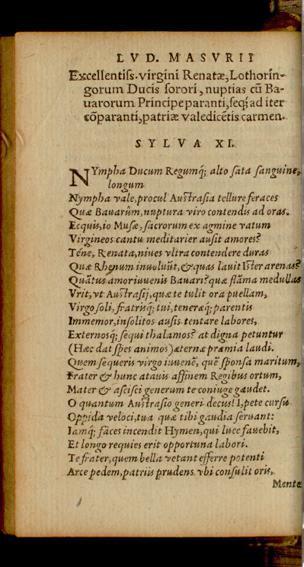 LVD. MASVRII
Excellentiss. virgini Renatæ, Lothorin-
gorum Ducis sorori, nuptias cũ Ba-
uarorum Principe paranti, seq́; ad iter
cõparanti, patriæ valedicẽtis carmen.
SYLVA XI.
NYmpha Ducum Regumq́; alto sata sanguine,
longum
Nympha vale, procul Austrasia tellure feraces
Quæ Bauarûm, nuptura viro contendis ad oras.
Ecquis, io Musæ, sacrorum ex agmine vatum
Virgineos cantu meditarier ausit amores?
Téne, Renata, niues vltra contendere duras
Quæ Rhenum inuoluũt, & quas lauit Ister arenas?
Quãtus amor iuuenis Bauari? quæ flãma medullas
Vrit, vt Austrasij, quæ te tulit ora puellam,
Virgo soli, fratrisq́; tui, teneræq́; parentis
Immemor, insolitos ausis tentare labores,
Externosq́; sequi thalamos? at digna petuntur
(Hæc dat spes animos) æternæ præmia laudi.
Quem sequeris virgo iuuenẽ, quẽ sponsa maritum,
Frater & hunc atauis affinem Regibus ortum,
Mater & ascisci generum te coniuge gaudet.
O quantum Austrasio generi decus! I, pete cursu
Oppida veloci, tua quæ tibi gaudia seruant:
Iamq́; faces incendit Hymen, qui luce fauebit,
Et longo requies erit opportuna labori.
Te frater, quem bella vetant efferre potenti
Arce pedem, patriis prudens vbi consulit oris,
Mente